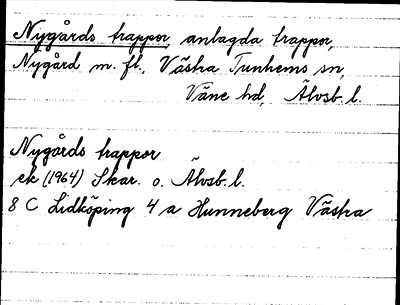 Nygårds trappor, anlagda trappor,
Nygård m. fl., Västra Tunhems sn,
Väne hd, Älvsb. l.
Nygårds trappor
ek (1964) Skar. o. Älvsb. l.
8 C Lidköping 4 a Hunneberg Västra